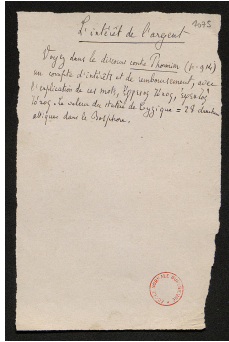 1075
L'intérêt de l'argent
Voyez dans le discours contre Phormion (p. 914)
un compte d'intérêts et de remboursement, avec
l'explication de ces mots, ἔγγειος τόκος,
τόκος. La valeur du statère de Cyzique = 28 drachmes
attiques dans le Bosphore.